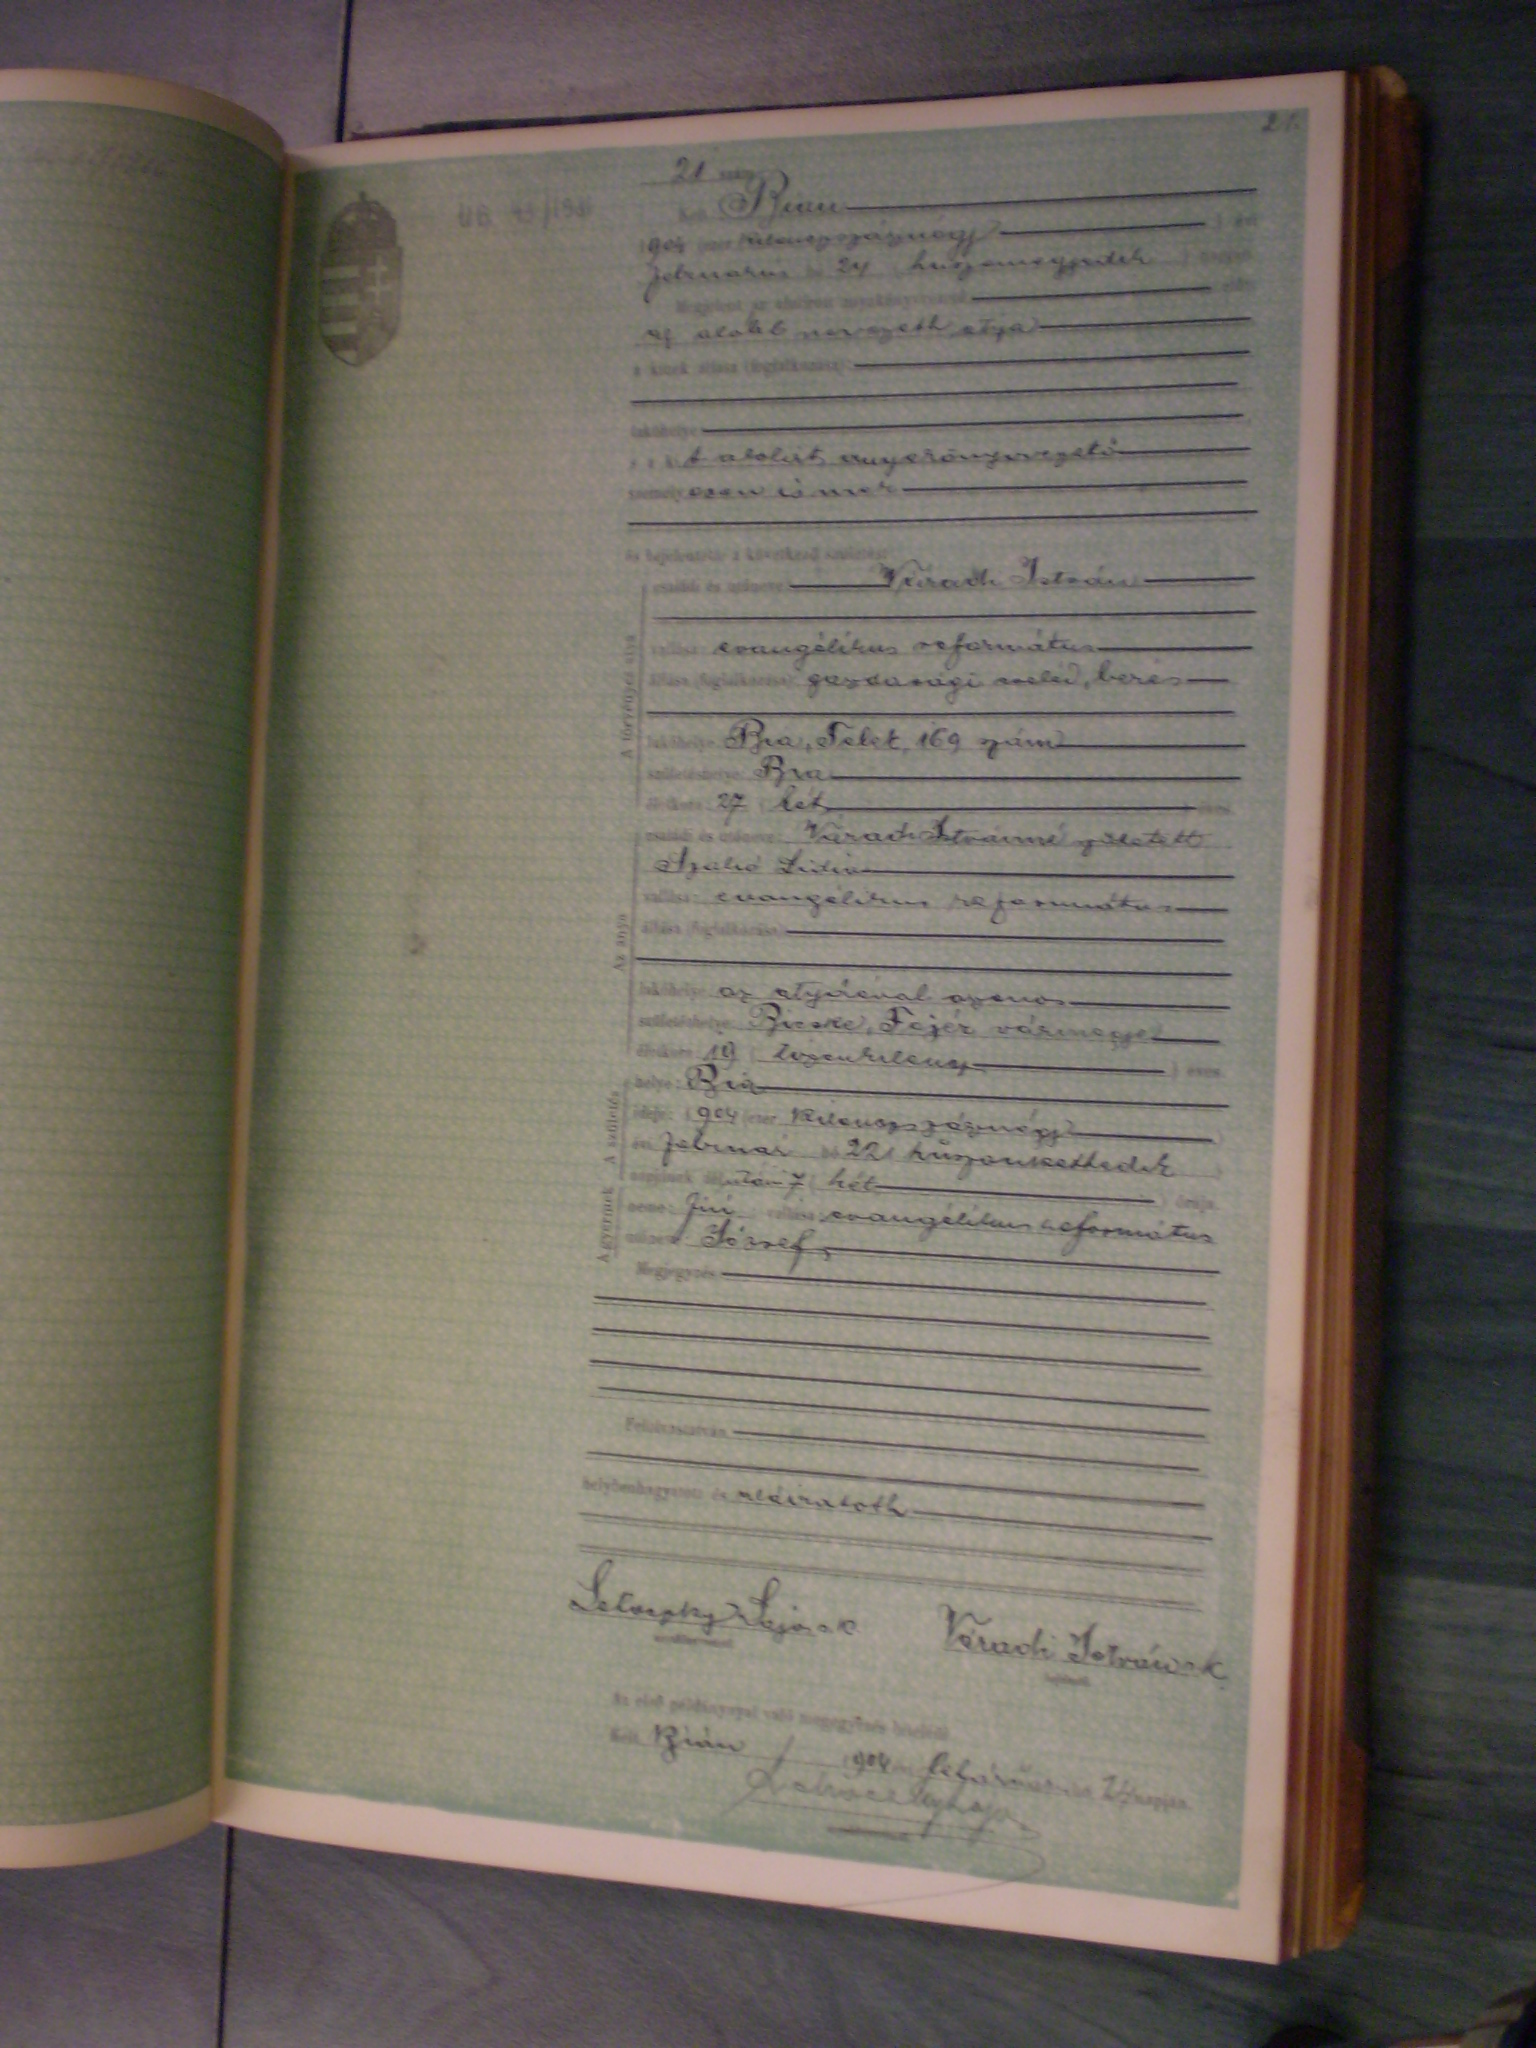 21
21
Kelt Bián
1904 ezer kilenczszáznégy évi
februárius hó 24 huszonnegyedik napján
Megjelent az alulirott anyakönyvvezető előtt
az alább nevezett atya
a kinek állása (foglalkozása):
lakóhelye:
s a kit alólirt anyakönyvvezető
személyesen ismer
és bejelentette a következő születést:
A törvényes atya
családi és utóneve: Váradi István
vallása: evangélikus református
állása (foglalkozása): gazdasági cseléd, béres
lakóhelye: Bia, Felek, 169 szám
születéshelye: Bia
életkora: 27 hét éves
Az anya
családi és utóneve: Váradi Istvánné született
Szabó Lidia
vallása: evangélikus református
állása (foglalkozása):
lakóhelye: az atyáéval azonos
születéshelye: Bicske, Fejér vármegye
életkora: 19 tizenkilencz éves
A születés
helye: Bia
ideje: 1904 ezer kilenczszáznégy
évi február hó 22 huszonkettedik
napjának délután 7 hét órája
A gyermek
neme: fiú vallása: evangélikus református
utóneve: József
Megjegyzés
Felolvastatván
helybenhagyatott és aláiratott
Váradi István s.k.
Az első példánynyal való megegyezés hiteléül
Kelt Bián 1904 évi február hó 24 napján